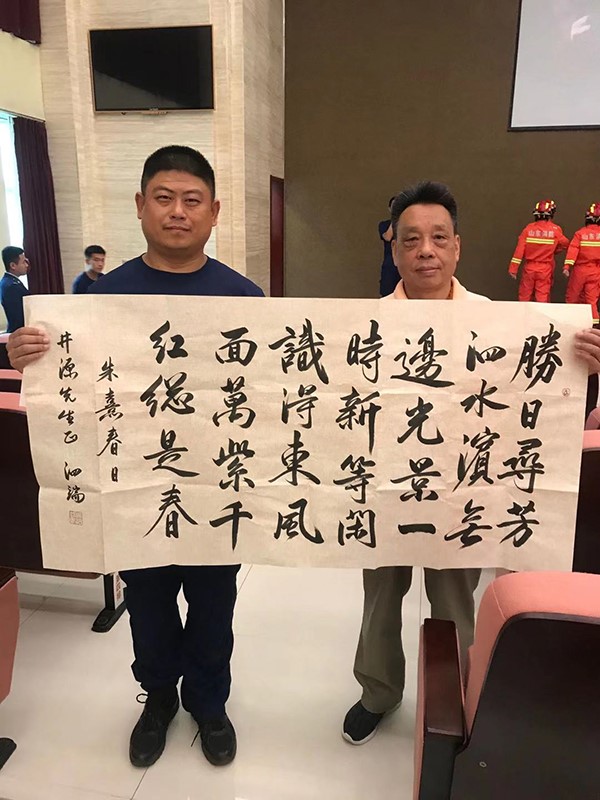 勝日尋芳
泗水濱無
邊光景一
時新等閑
識得東風
面萬紫千
紅総是春
朱熹春日
井源先生正 泗端
山东消防